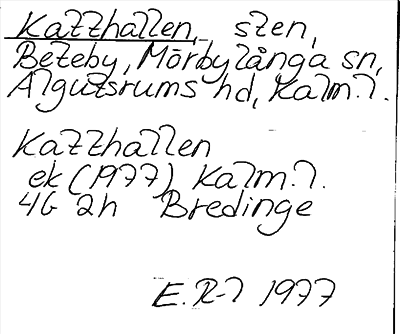 Katthallen, sten,
Beteby, Mörbylånga sn,
Algutsrums hd, Kalm.l.
Katthallen
ek (1977) Kalm.l.
4G 2h Bredinge
E. R-l 1977